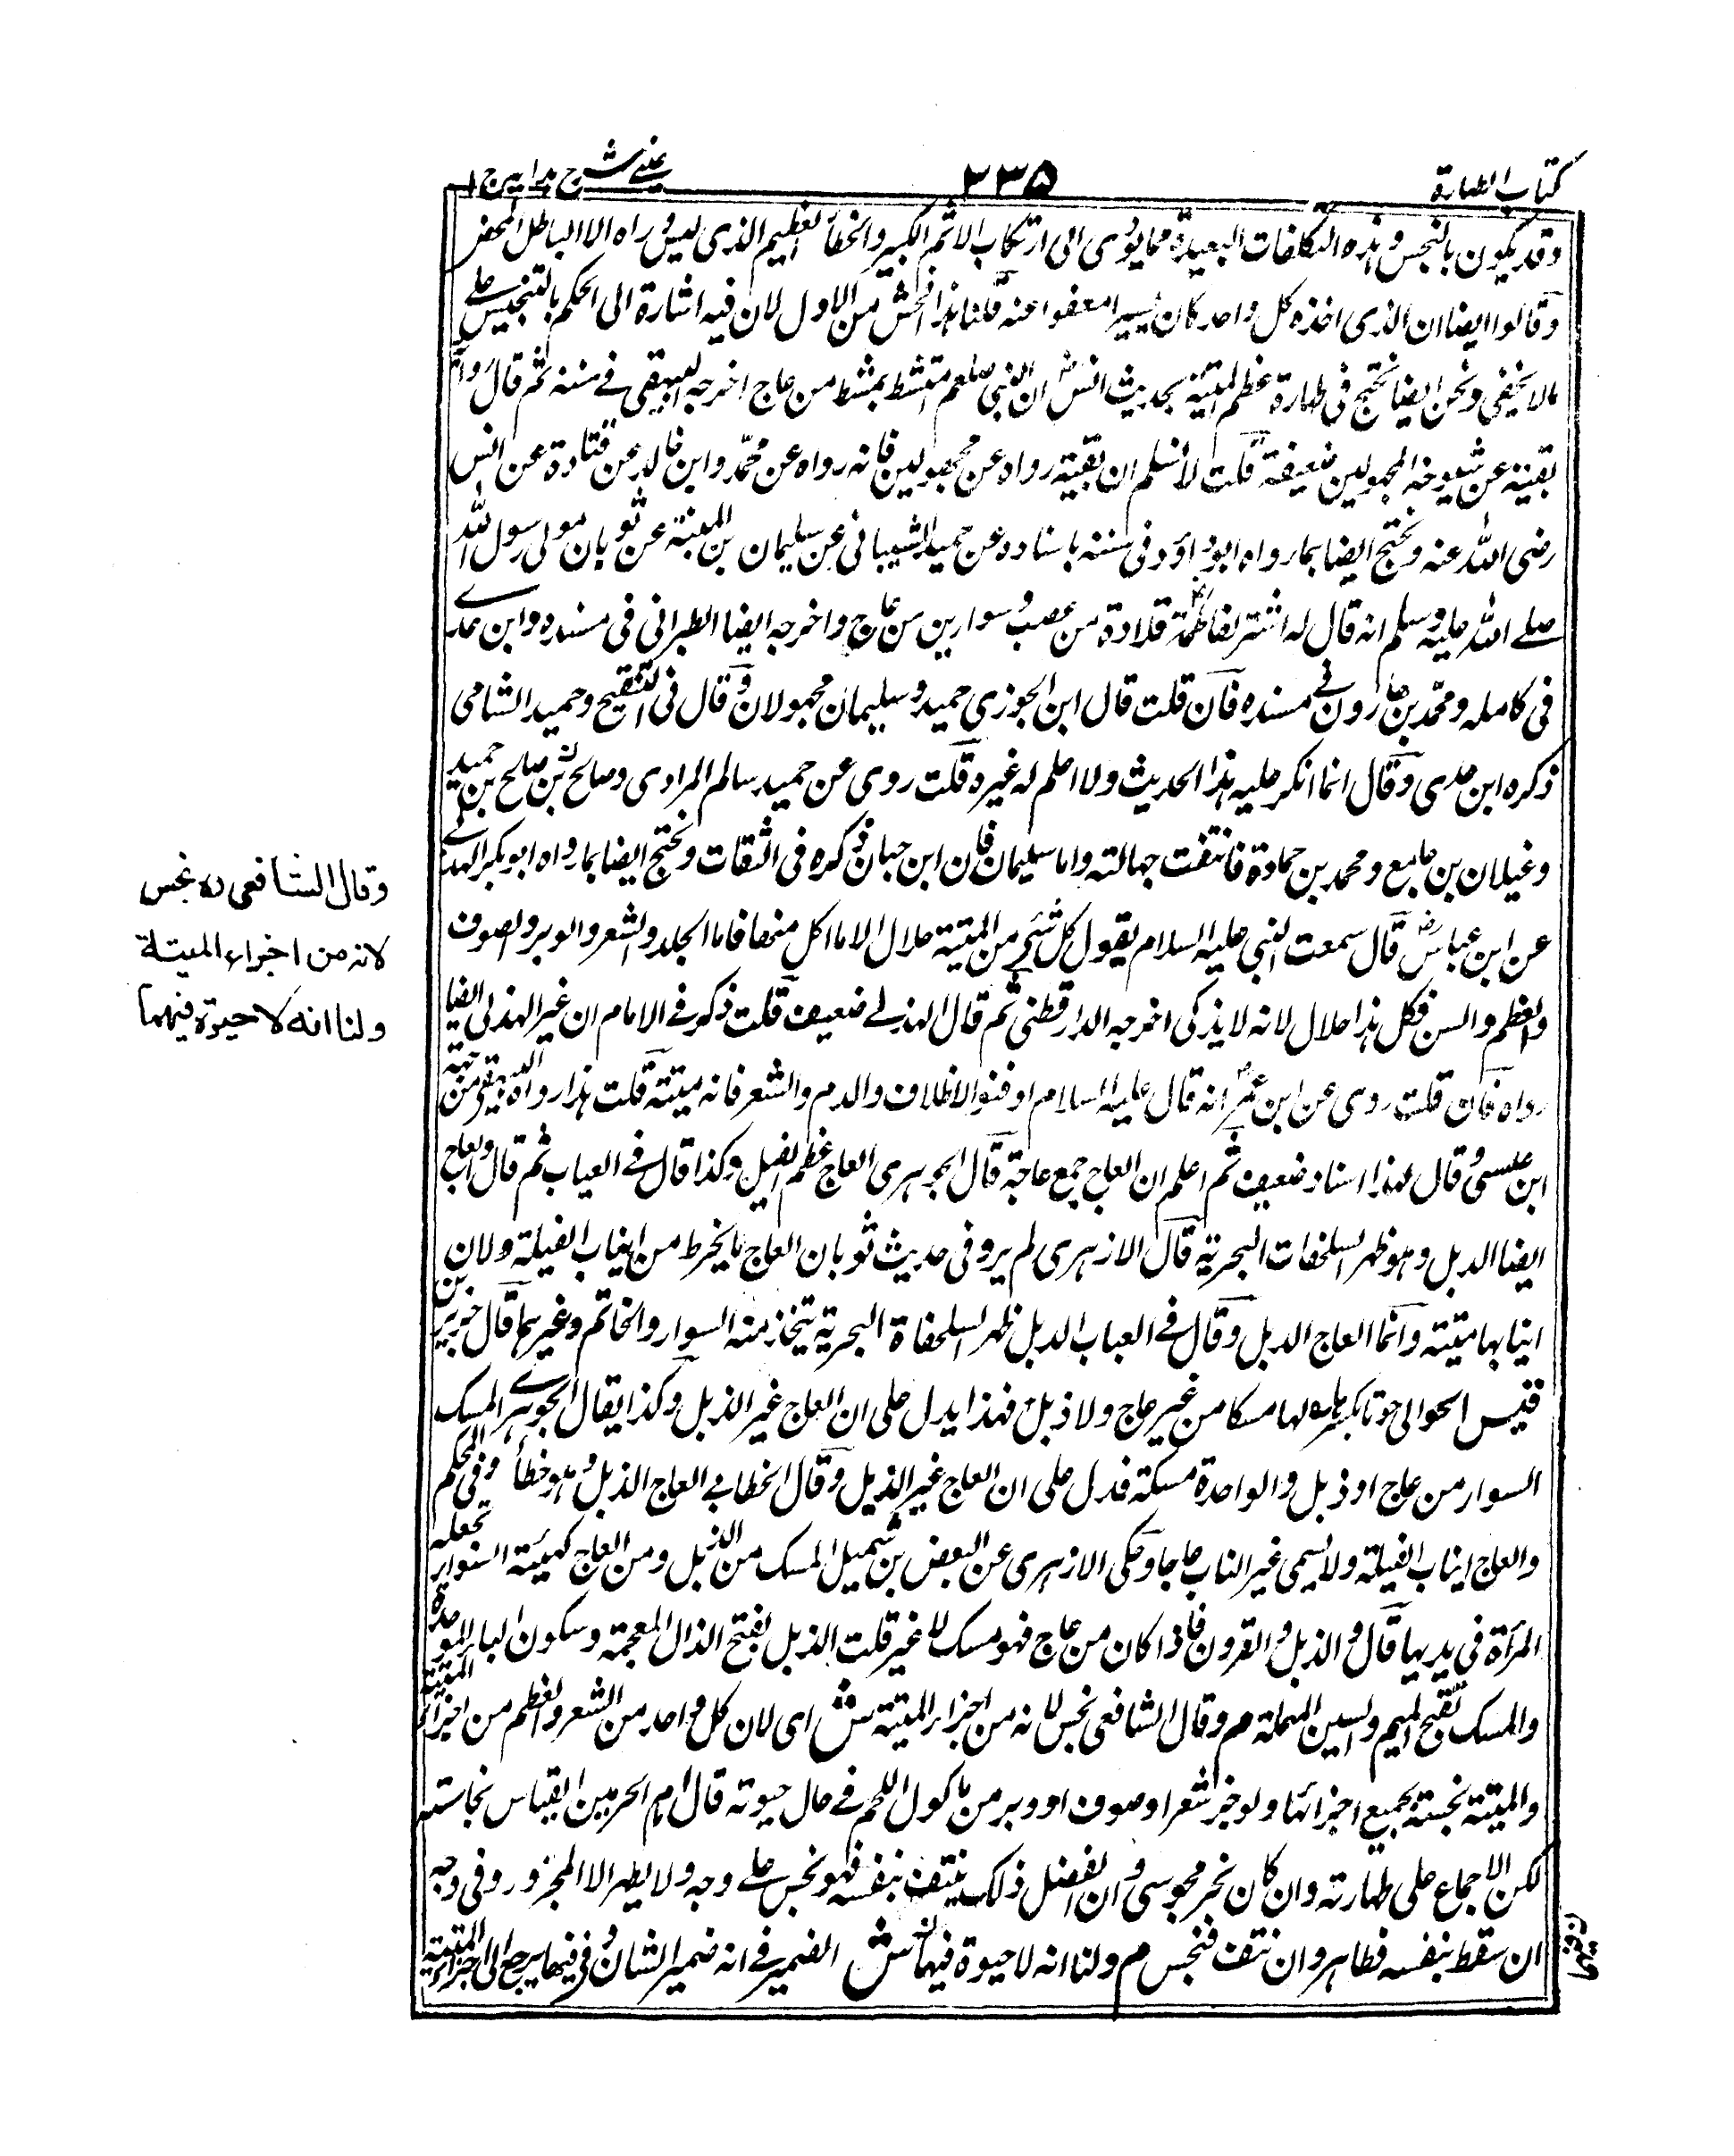 كتاب الطهارة
٢٣٥
عينى شرح هدايه ج ١
وقد يكون بالنجس وهذه التكلفات البعيدة مما يؤدى الى ارتكاب الاثم الكبير والخطأ العظيم الذى ليس وراه الا الباطل المحض
وقالوا ايضا ان الذى اخذه كل واحد كان يسيرا معفوا عنه قلنا هذا افحش من الاول لان فيه اشارة الى الحكم بالتنجيس على
مالا يخفى ونحن ايضا نحتج فى طهارة عظم الميتة بحديث انس رض ان النبى صلعم امتشط بمشط من عاج اخرجه البيهقى فے سننه ثم قال رواية
بقية عن شيوخه المجهولين ضعيفة قلت لا نسلم ان بقية رواه عن مجهولين فانه رواه عن محمد وابن خالد عن قتادة عن انس
رضى الله عنه ونحتج ايضا بما رواه ابو داؤد فى سننه باسناده عن حميد الشيبانى عن سليمان بن المنبة عن ثوبان مولى رسول الله
صلے الله عليه وسلم انه قال له اشتر لفاطمة قلادة من عصب وسوارين من عاج واخرجه ايضا الطبرانى فى مسنده وابن عدے
فى كامله ومحمد بن هارون فى مسنده فان قلت قال ابن الجوزى حميد وسليمان مجهولان وقال فى التنقيح وحميد الشامى
ذكره ابن عدى وقال انما انكر عليه هذا الحديث ولا اعلم له غيره قلت روى عن حميد سالم المرادى وصالح بن صالح بن حميد
وغيلان بن جامع ومحمد بن حمادة فانتفت جهالته واما سليمان فان ابن حبان ذكره فى الثقات ونحتج ايضا بما رواه ابو بكر الهذلے
عن ابن عباس رض قال سمعت النبى عليه السلام يقول كل شئ من الميتة حلال الا ما اكل منها فاما الجلد والشعر والوبر والصوف
والعظم والسن فكل هذا حلال لانه لا يذكى اخرجه الدارقطنى ثم قال الهذلے ضعيف قلت ذكر فے الامام ان غير الهذلى ايضا
رواه فان قلت روى عن ابن عمر رض انه قال عليه السلام ادفنوا الاظلاف والدم والشعر فانه ميتة قلت هذا رواه البيهقى من جهة
ابن عيسى وقال هذا اسناد ضعيف ثم اعلم ان العاج جمع عاجة قال الجوهرى العاج عظم الفيل وكذا قال فے العباب ثم قال والعاج
ايضا الدبل وهو ظهر السلحفات البحرية قال الازهرى لم يرو فى حديث ثوبان العاج ما يخرط من انياب الفيلة ولان
انيابها ميتة وانما العاج الدبل وقال فے العباب الدبل ظهر السلحفاة البحرية يتخذ منه السوار والخاتم وغيرهما قال جرير بن
لها مسكا من غير عاج ولا ذبل فهذا يدل على ان العاج غير الذبل وكذا يقال الجوهرے المسك
السوار من عاج او ذبل والواحدة مسكة فدل على ان العاج غير الذبل وقال الخطابے العاج الذبل وهو خطأ وفى المحكم
والعاج انياب الفيلة ولا يسمى غير الناب عاجا وحكى الازهرى عن البعض بن شميل المسك من الذبل ومن العاج كهيئة السوار تجعله
المرأة فى يديها قال والذبل والقرون فاذا كان من عاج فهو مسك لا غير قلت الذبل بفتح الذال المعجمة وسكون الباء الموحدة
والمسك بفتح الميم والسين المهملة م وقال الشافعى نجس لانه من اجزاء الميتة ش اى لان كل واحد من الشعر والعظم من اجزاء الميتة
والميتة نجسة بجميع اجزائها ولو جز شعر او صوف او وبر من ماكول اللحم فے حال حيوته قال امام الحرمين القياس نجاسته
لكن الاجماع على طهارته وان كان بجز مجوسى وان انفصل ذلك بنتف بنفسه فهو نجس علے وجه ولا يطهر الا المجزور وفى وجه
ان سقط بنفسه فطاهر وان نتف فنجس م ولنا انه لا حيوة فيها ش الضمير فے انه ضمير الشان وفى فيها يرجع الى اجزاء الميتة
وقال الشافعى ره نجس
لانه من اجزاء الميتة
ولنا انه لا حيوة فيهما